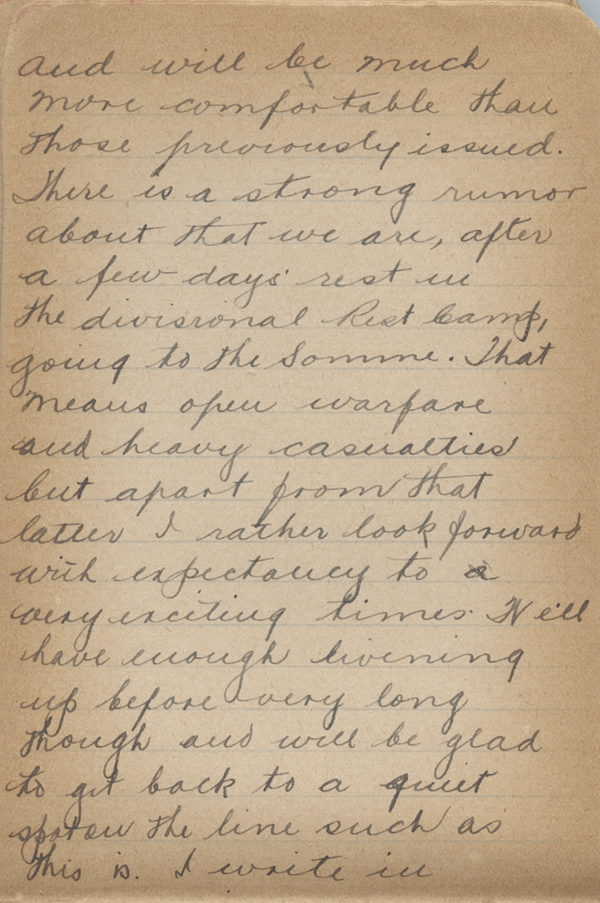 and will be much
more comfortable than
those previously issued.
There is a strong rumor
about that we are, after
a few days' rest in
the divisional Rest Camp,
going to the Somme. That
means open warfare
and heavy casualties
but apart from that
latter I rather look forward
with expectancy to a
very exciting times. We'll
have enough livening
up before very long
though and will be glad
to get back to a quiet
spot on the line such as
this is. I write in